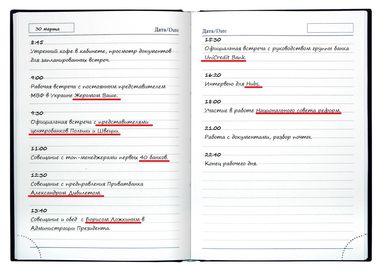 30 марта
Дата/Date
8:45
Утренний кофе в кабинете, просмотр документов
для запланированных встреч.
9:00
Рабочая встреча с постоянным представителем
МВФ в Украине Жеромом Ваше.
9:30
Официальная встреча с представителями
центробанков Польши и Швеции.
11:00
Совещание с топ-менеджерами первых 40 банков.
12:30
Совещание с предправления Приватбанка
Александром Дубилетом.
13:40
Совещание и обед с Борисом Ложкиным в
Администрации Президента.
Дата/Date
15:30
Официальная встреча с руководством группы банка
UniCredit Bank.
16:20
Интервью для
18:00
Участие в работе Национального совета реформ.
21:00
Работа с документами, разбор почты.
22:40
Конец рабочего дня.